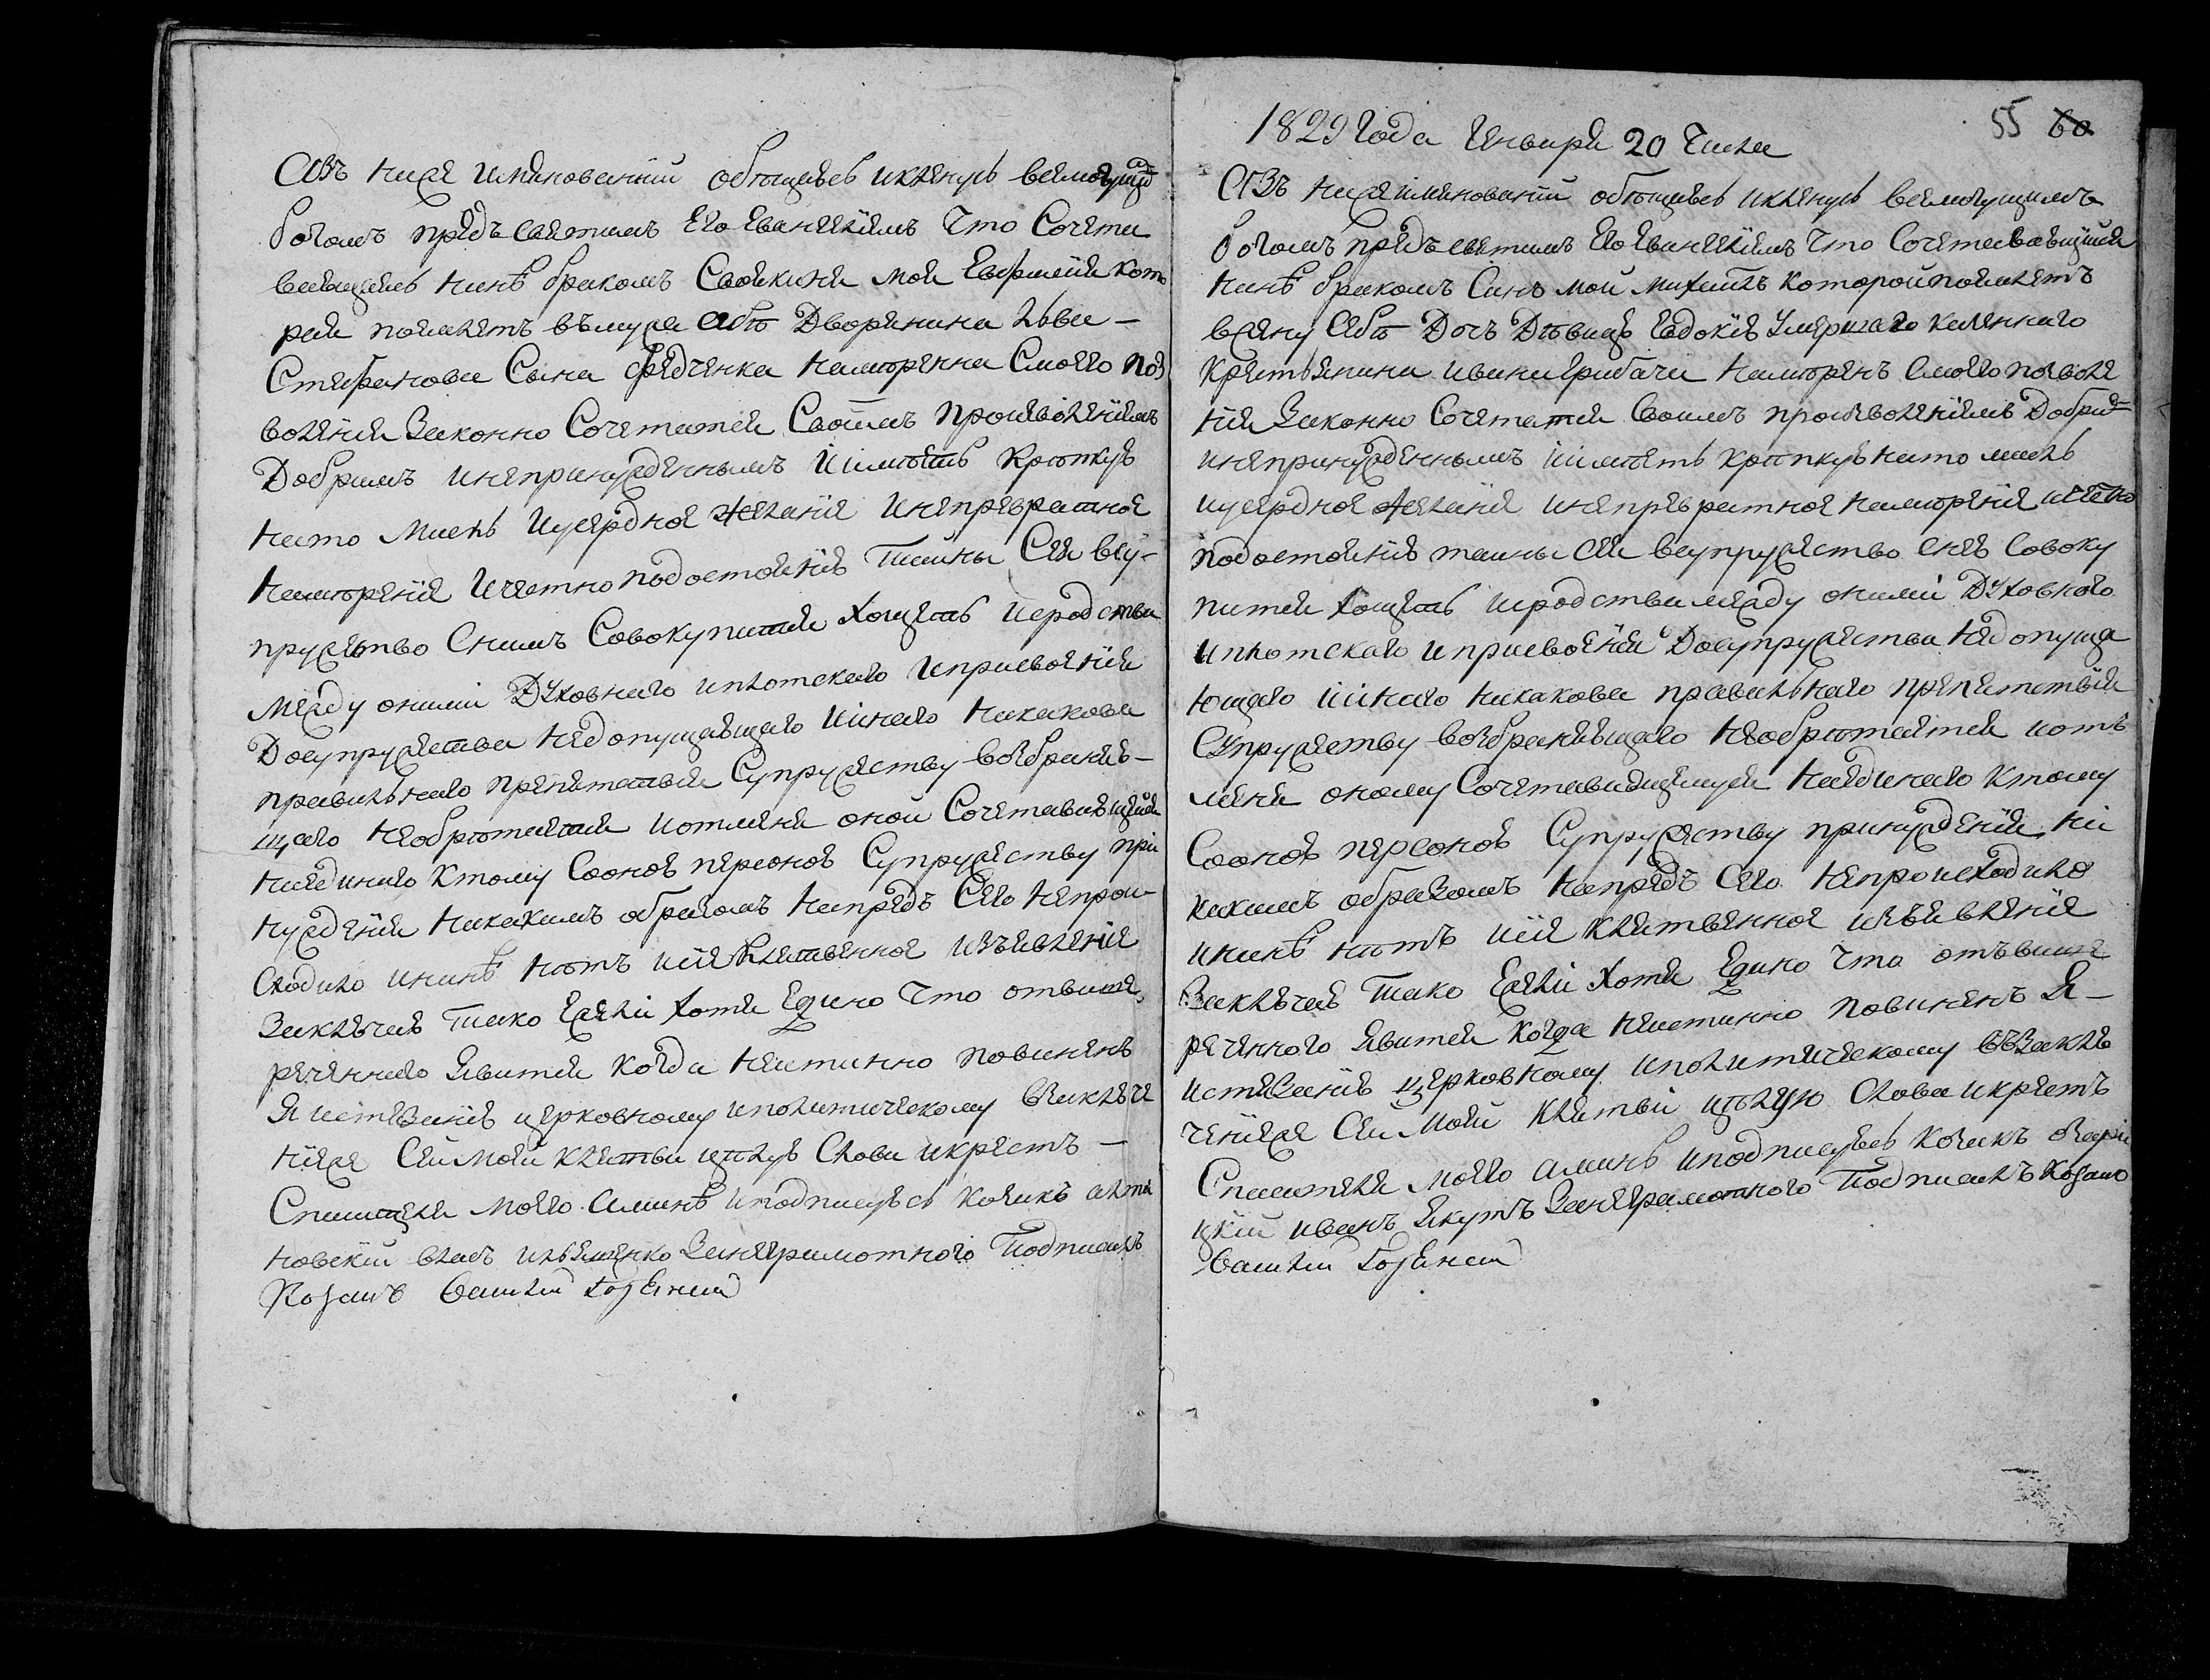 Азъ ниже имянованній обѣщаюсь и клянусь всемогущ
богомъ предъ святимъ Его Евангеліемъ Что Сочета
ваящаясь нинѣ бракомъ Своякиня моя Евфимія кото
рая поемлетъ въ мужа Себѣ Дворянина Льва —
Стефанова Сына Федченка намѣренна Смоего поз
воленія Законно Сочетатся Своімъ произволеніемъ
Добримъ и непринужденнымъ Іимѣетъ Крѣпкую
на то Мисль И усердное желаніе И непревратное
Намѣреніе И честно подостоянію Тайны Сея всу-
пружество Снимъ Совокупится хощетъ И сродства
Между онимі Духовнаго и плотскаго И присвоенія
До супружества недопущающаго І инаго Никакова
правильнаго препятствія Супружеству возбраняю-
щаго Необрѣтается И отменя оной Сочетаваящейся
Ниединаго Ктому Сооною персоною Супружеству прі
нужденія Никакимъ образомъ Напредъ Сего Непроис-
ходило И нинѣ Нѣтъ И сіе Клятвенное Изъявленіе
Заключая Тако Ежелі хотя Едино Что отвише
реченнаго Явится когда Неистинно повиненъ
Я истязанію церковному и политическому Взаключе
ніеже Сей моей клятви цѣлую Слова и крестъ —
Спасителя моего. Аминь И подписуюсь козакъ
новскій власъ ильяшенко За неграмотного Подписалъ
Козакъ Василій
1829 Года Января 20 Числа
55 60
АЗъ нижеіменованній обѣщаюсь и клянусь всемогущимъ
богомъ предъ святимъ Его Евангеліемъ Что Сочетаваящійся
нинѣ бракомъ Синъ мой михаилъ которой поемлетъ
в жену Себѣ Дочъ Дѣвицу Евдокію Умершаго казеннаго
Крестьянина ивана грибача намѣренъ Смоего позволе
нія Законно Сочетатся Своимъ произволеніемъ Добри
и непринужденнымъ Іимѣетъ крѣпкую на то мисль
и усердное желаніе и непревратное намѣреніе и честно
подостоянію тайны Сея всупружество Снею Совоку
пится хощетъ И сродства между онимі Духовного
и плотскаго и присвоенія До супружества недопуща
ющаго І инаго никакова правильнаго препятствія
Супружеству возбраняющаго Необрѣтается и отъ
меня оному Сочетаваящемуся Наединаго ктому
Сооною персоною Супружеству принужденія ні
какимъ образомъ Напредъ Сего Непроисходило
и нинѣ нѣтъ И сіе клятвенное изъявленіе
Заключая Тако Ежелі хотя Едино Что отъвише
реченного Явится Когда Неистинно повиненъ Я —
истязанію церковному и политическому въ Заклю
ченіеже Сей Моей клятви цѣлую Слова и крестъ
Спасителя Моего аминь и подписуюсь козакъ
иванъ Якутъ За неграмотного Подписалъ Козакъ
Василій